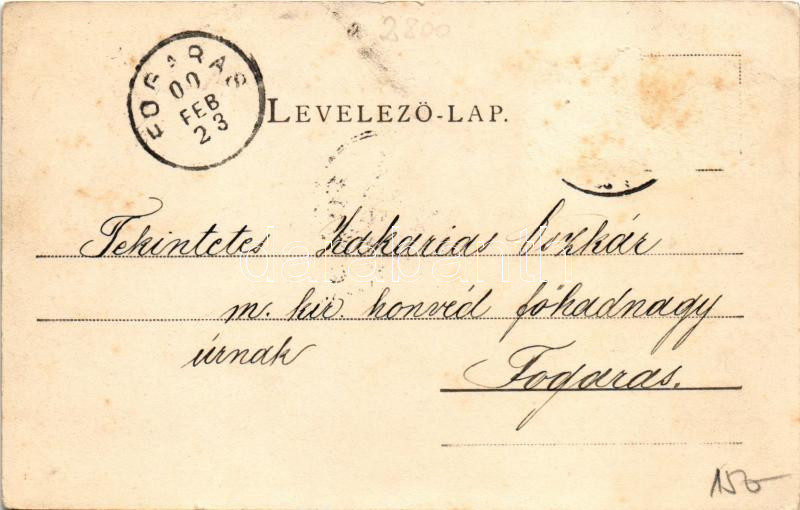 2800
FOGARAS
00
FEB
23
LEVELEZŐ-LAP.
Tekintetes Zakarias Oszkár
m. kir. honvéd főhadnagy
úrnak
Fogaras.